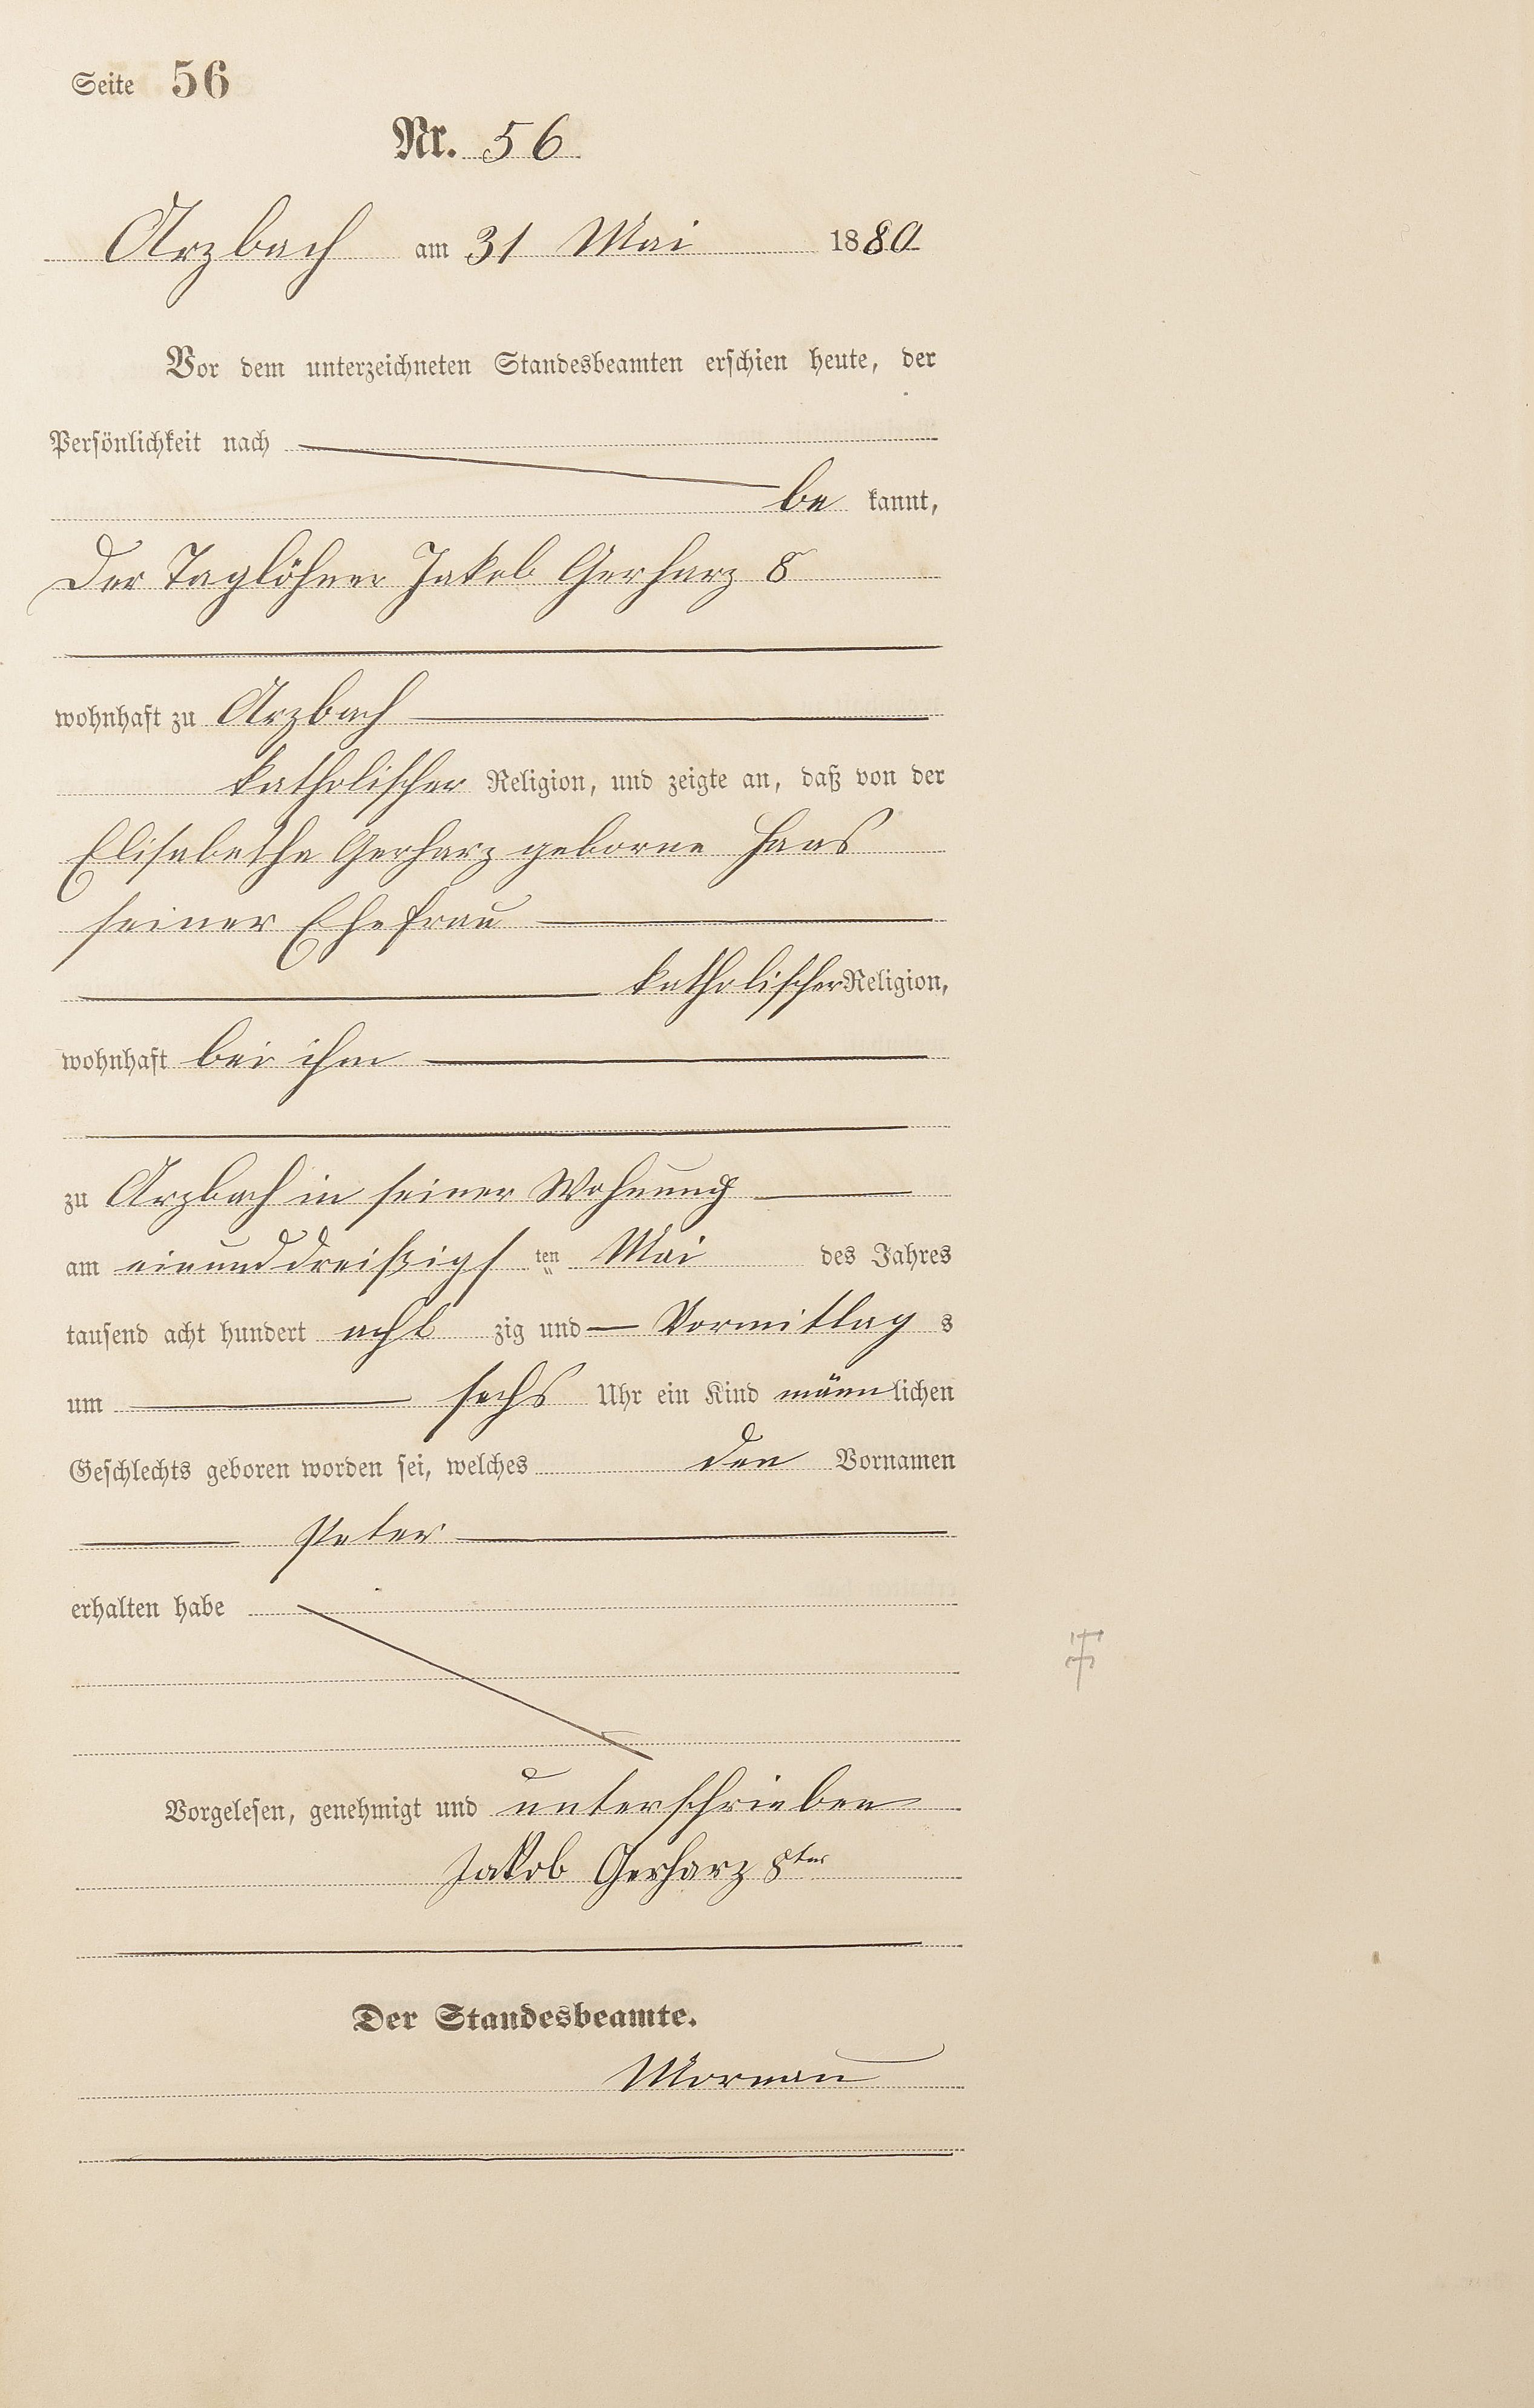 Seite 56
Nr. 56
Arzbach am 31 Mai 1880
Vor dem unterzeichneten Standesbeamten erschien heute, der
Persönlichkeit nach
be kannt,
Der Taglöhner Jakob Gerharz 8
wohnhaft zu Arzbach
katholischer Religion, und zeigte an, daß von der
Elisabetha Gerharz geborne Haas
seiner Ehefrau
katholischer Religion,
wohnhaft bei ihm
zu Arzbach in seiner Wohnung
am einunddreißigs ten Mai des Jahres
tausend acht hundert acht zig und — Vormittag s
um sechs Uhr ein Kind männlichen
Geschlechts geboren worden sei, welches den Vornamen
Peter
erhalten habe
Vorgelesen, genehmigt und unterschrieben
Jakob Gerharz 8ter
Der Standesbeamte.